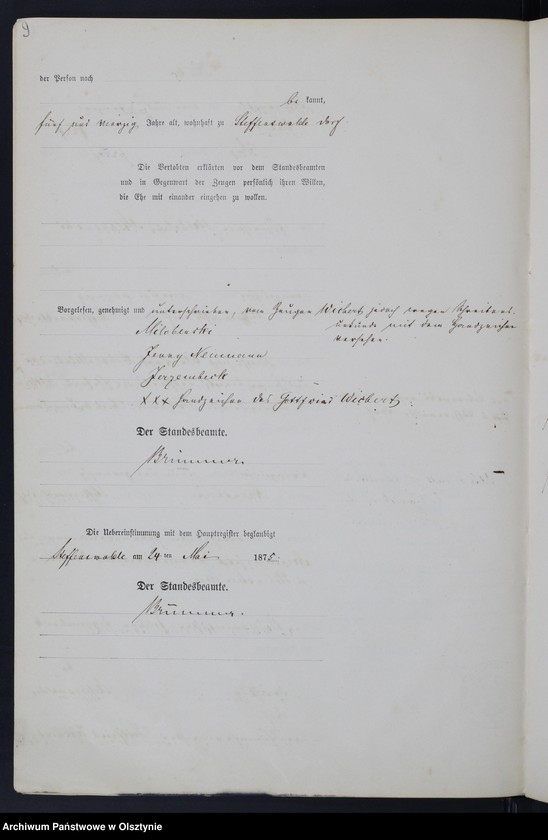 9
der Person nach
be kannt,
fünf und vierzig Jahre alt, wohnhaft zu Steffenswalde Dorf.
Die Verlobten erklärten vor dem Standesbeamten
und in Gegenwart der Zeugen persönlich ihren Willen,
die Ehe mit einander eingehen zu wollen.
Vorgelesen, genehmigt und unterschrieben, vom Zeugen Wichert jedoch wegen Schreibens
unkunde mit dem Handzeichen
versehen.
Milobenski
Jenny Neumann
Jerzembeck
XXX Handzeichen des Gottfried Wichert.
Der Standesbeamte.
Brümmer.
Die Uebereinstimmung mit dem Hauptregister beglaubigt
Steffenswalde am 24 ten Mai 1875.
Der Standesbeamte.
Brümmer.
Archiwum Państwowe w Olsztynie